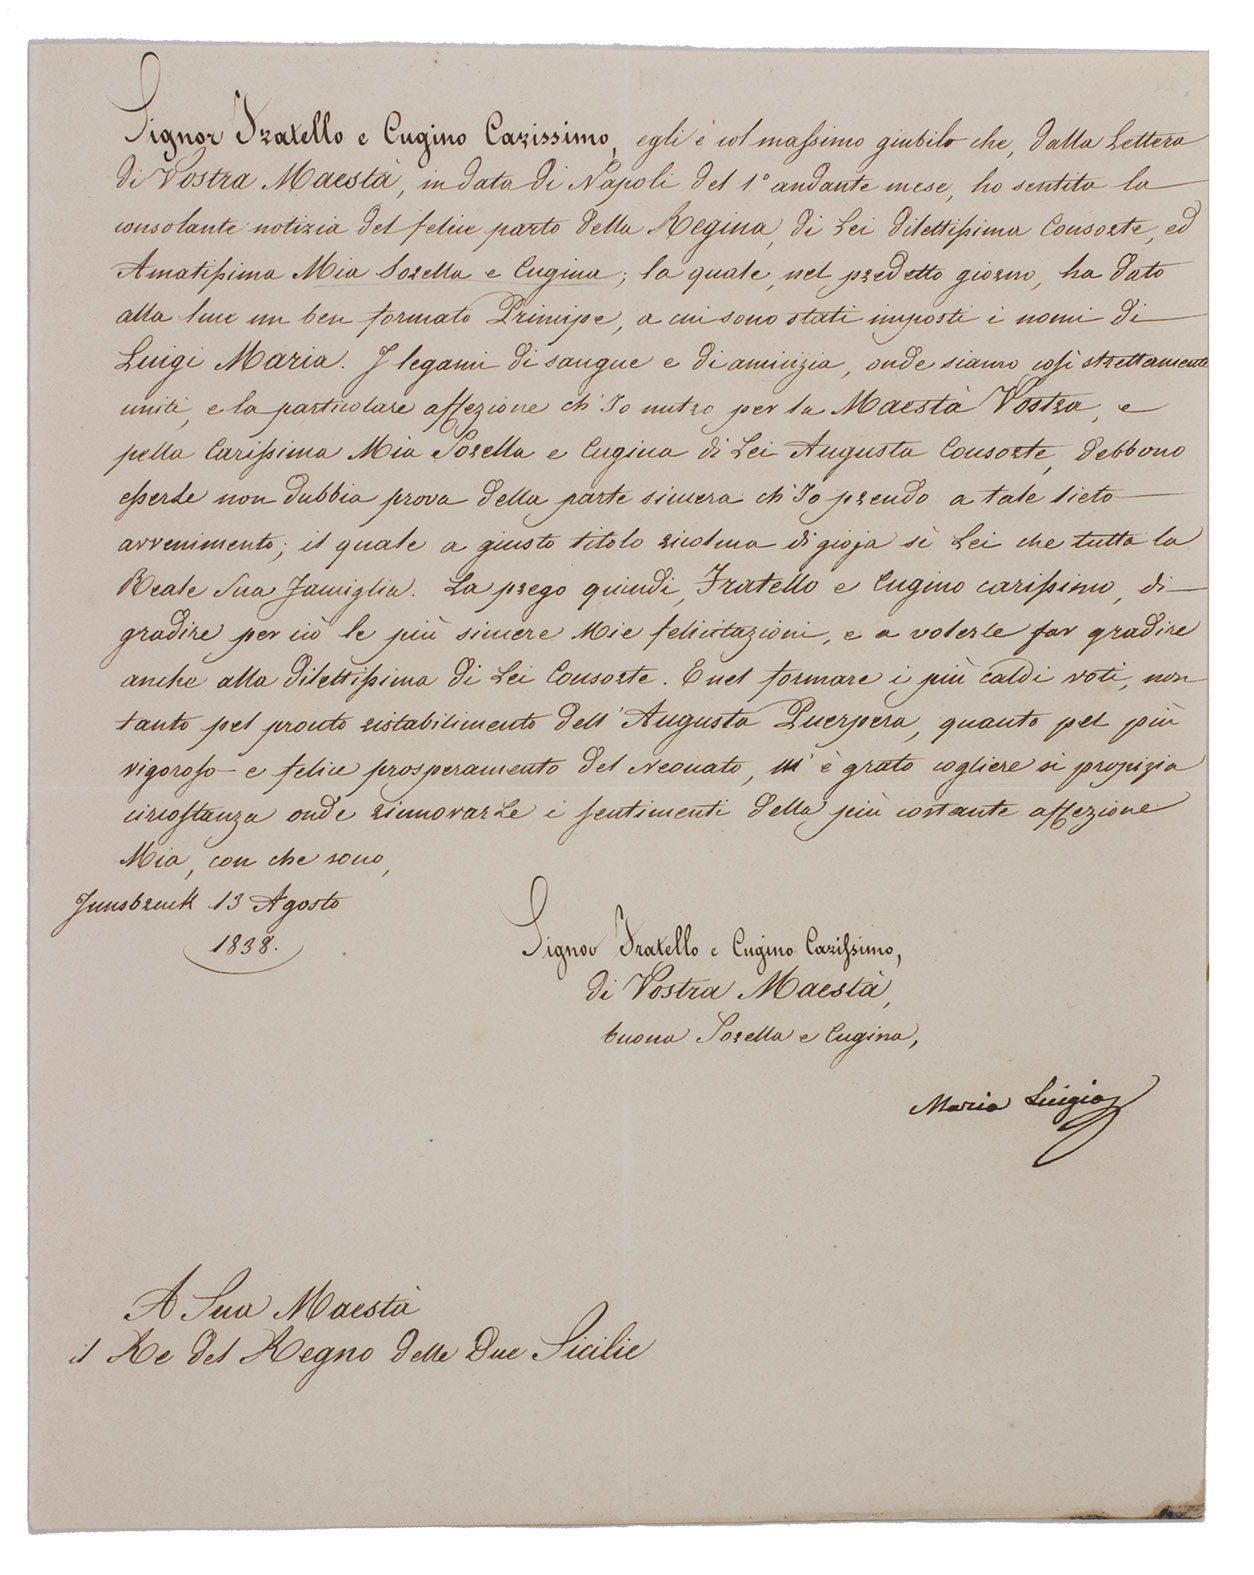 Signor Fratello e Cugino Carissimo, egli è col massimo giubilo che, dalla Lettera
di Vostra Maestà, in data di Napoli del 1° andante mese, ho sentito la
consolante notizia del felice parto della Regina, di Lei dilettissima Consorte, ed
Amatissima Mia Sorella e Cugina; la quale, nel predetto giorno, ha dato
alla luce un ben formato Principe, a cui sono stati imposti i nomi di
Luigi Maria. I legami di sangue e di amicizia, onde siamo così strettamente
uniti, e la particolare affezione ch'Io nutro per la Maestà Vostra, e
pella Carissima Mia Sorella e Cugina di Lei Augusta Consorte, debbono
esserLe non dubbia prova della parte sincera ch'Io prendo a tale lieto
avvenimento; il quale a giusto titolo ricolma di gioja sì Lei che tutta la
Reale Sua Famiglia. La prego quindi, Fratello e Cugino carissimo, di
gradire per ciò le più sincere Mie felicitazioni, e a volerle far gradire
anche alla dilettissima di Lei Consorte. E nel formare i più caldi voti, non
tanto pel pronto ristabilimento dell'Augusta Puerpera, quanto pel più
vigoroso e felice prosperamento del Neonato, m'è grato cogliere sì propizia
circostanza onde rinnovarLe i sentimenti della più costante affezione
Mia, con che sono,
Innsbruck 13 Agosto
1838.
Signor Fratello e Cugino Carissimo,
di Vostra Maestà,
buona Sorella e Cugina,
Maria Luigia
A Sua Maestà
il Re del Regno delle Due Sicilie